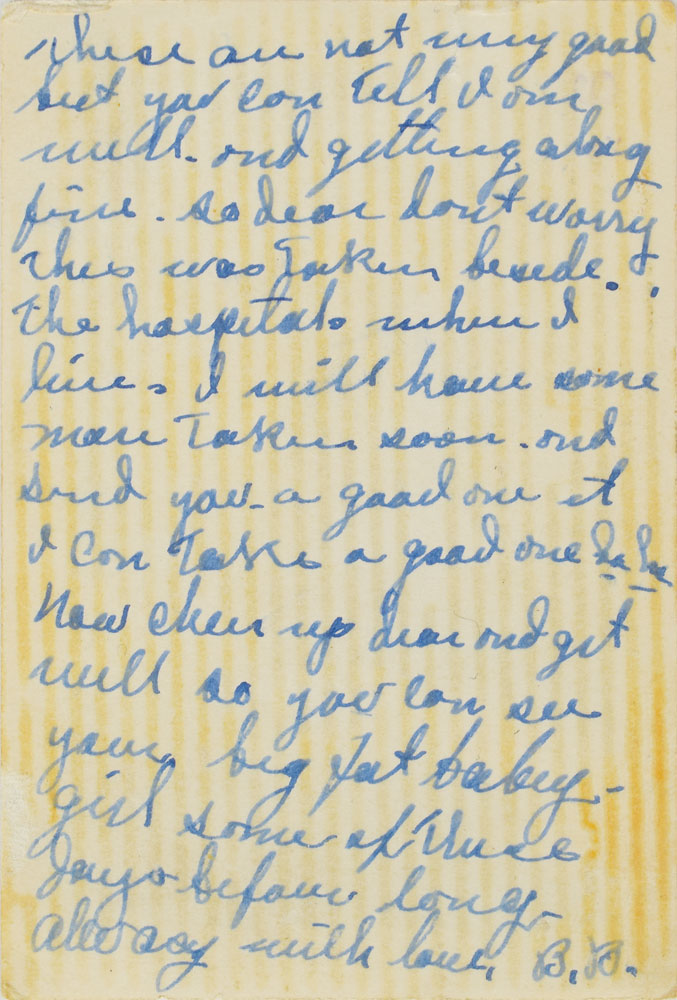 these are not very good
but you can tell I am
well. and getting along
fine. so dear don't worry
this was taken beside.
the hospitals when I
live. I will have some
more taken soon. and
send you - a good one if
I can take a good one ha ha
Now cheer up dear and get
well so you can see
your big fat babey -
girl some of these
days before long -
allway with love, B.B.